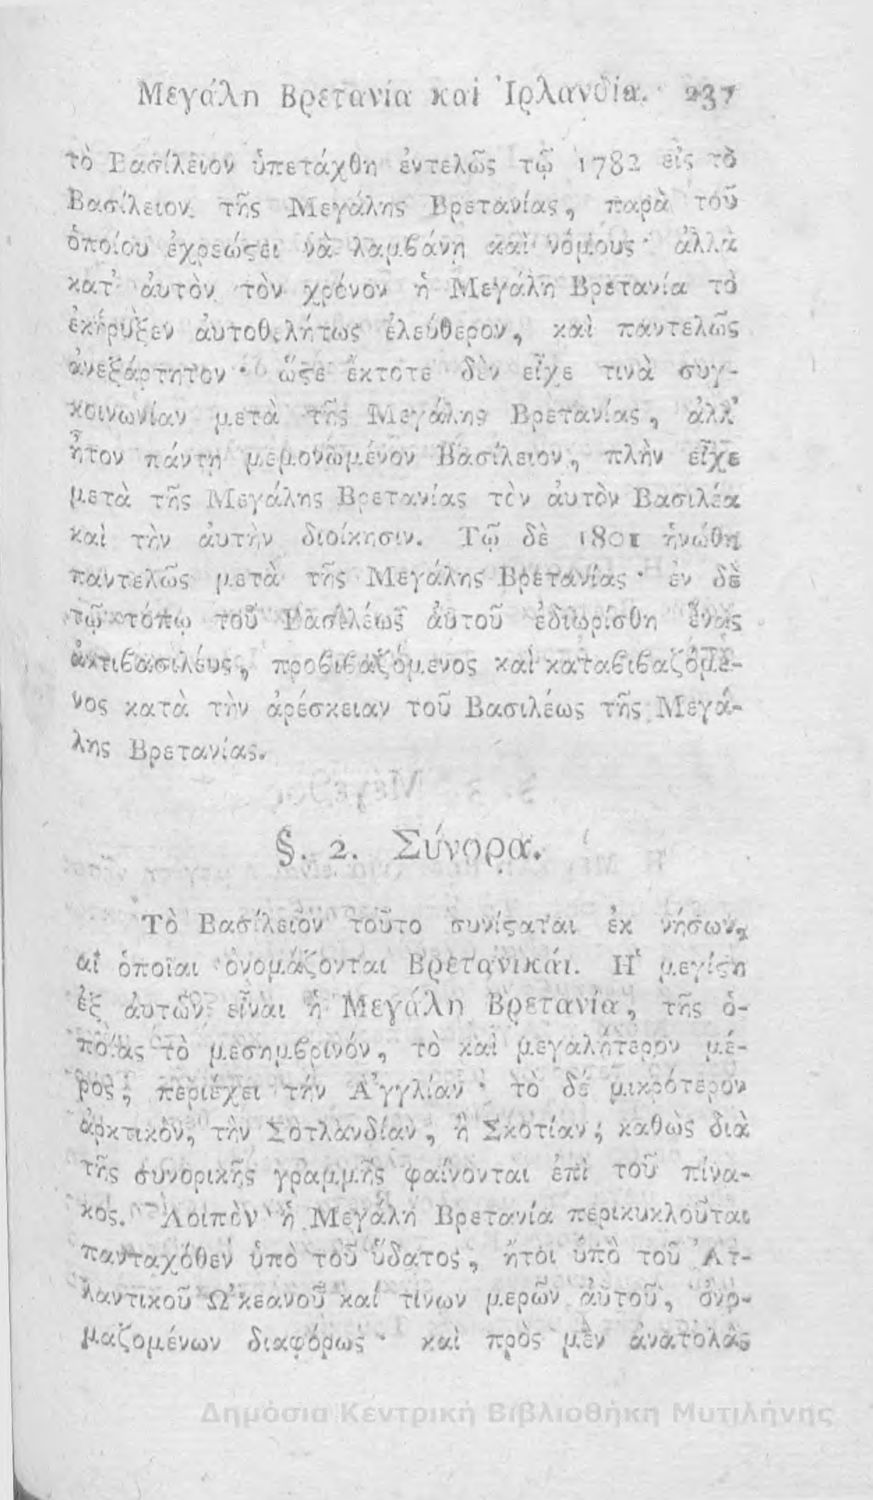 Μεγάλη Βρετανία καὶ Ἰρλανδία. 237
τὸ Βασίλειον ὑπετάχθη ἐντελῶς τῷ 1782 εἰς τὸ
Βασίλειον τῆς Μεγάλης Βρετανίας, παρὰ τοῦ
ὁποίου ἐχρεώςει νὰ λαμβάνῃ καὶ νόμους· ἀλλὰ
κατ' ἀυτὸν τὸν χρόνον ἡ Μεγάλη Βρετανία τὸ
ἐκήρυξεν ἀυτοθελήτως ἐλεύθερον, καὶ παντελῶς
ἀνεξάρτητον· ὥςε ἔκτοτε δὲν εἶχε τινὰ συγ-
κοινωνίαν μετὰ τῆς Μεγάλης Βρετανίας, ἀλλ'
ἦτον πάντη μεμονωμένον Βασίλειον, πλὴν εἶχε
μετὰ τῆς Μεγάλης Βρετανίας τὸν ἀυτὸν Βασιλέα
καὶ τὴν ἀυτὴν διοίκησιν. Τῷ δὲ 1801 ἡνώθη
παντελῶς μετὰ τῆς Μεγάλης Βρετανίας· ἐν δὲ
τῷ τόπῳ τοῦ Βασιλέως ἀυτοῦ ἐδιωρίσθη ἕνας
ἀντιβασιλέυς, προβιβαζόμενος καὶ καταβιβαζόμε-
νος κατὰ τὴν ἀρέσκειαν τοῦ Βασιλέως τῆς Μεγά-
λης Βρετανίας.
§. 2. Σύνορα.
Τὸ Βασίλειον τοῦτο συνίςαται ἐκ νήσων,
αἱ ὁποῖαι ὀνομάζονται Βρετανικαί. Ἡ μεγίςη
ἐξ ἀυτῶν εἶναι ἡ Μεγάλη Βρετανία, τῆς ὁ-
ποίας τὸ μεσημβρινόν, τὸ καὶ μεγαλήτερον μέ-
ρος, περιέχει τὴν Ἀγγλίαν· τὸ δὲ μικρότερον
ἀρκτικὸν, τὴν Σοτλανδίαν, ἢ Σκοτίαν, καθὼς διὰ
τῆς συνορικῆς γραμμῆς φαίνονται ἐπὶ τοῦ πίνα-
κος. Λοιπὸν ἡ Μεγάλη Βρετανία περικυκλοῦται
πανταχόθεν ὑπὸ τοῦ ὕδατος, ἤτοι ὑπὸ τοῦ Ἀτ-
λαντικοῦ Ὠκεανοῦ καί τινων μερῶν ἀυτοῦ, ὀνο-
μαζομένων διαφόρως· καὶ πρὸς μὲν ἀνατολὰς
Δημόσια Κεντρική Βιβλιοθήκη Μυτιλήνης